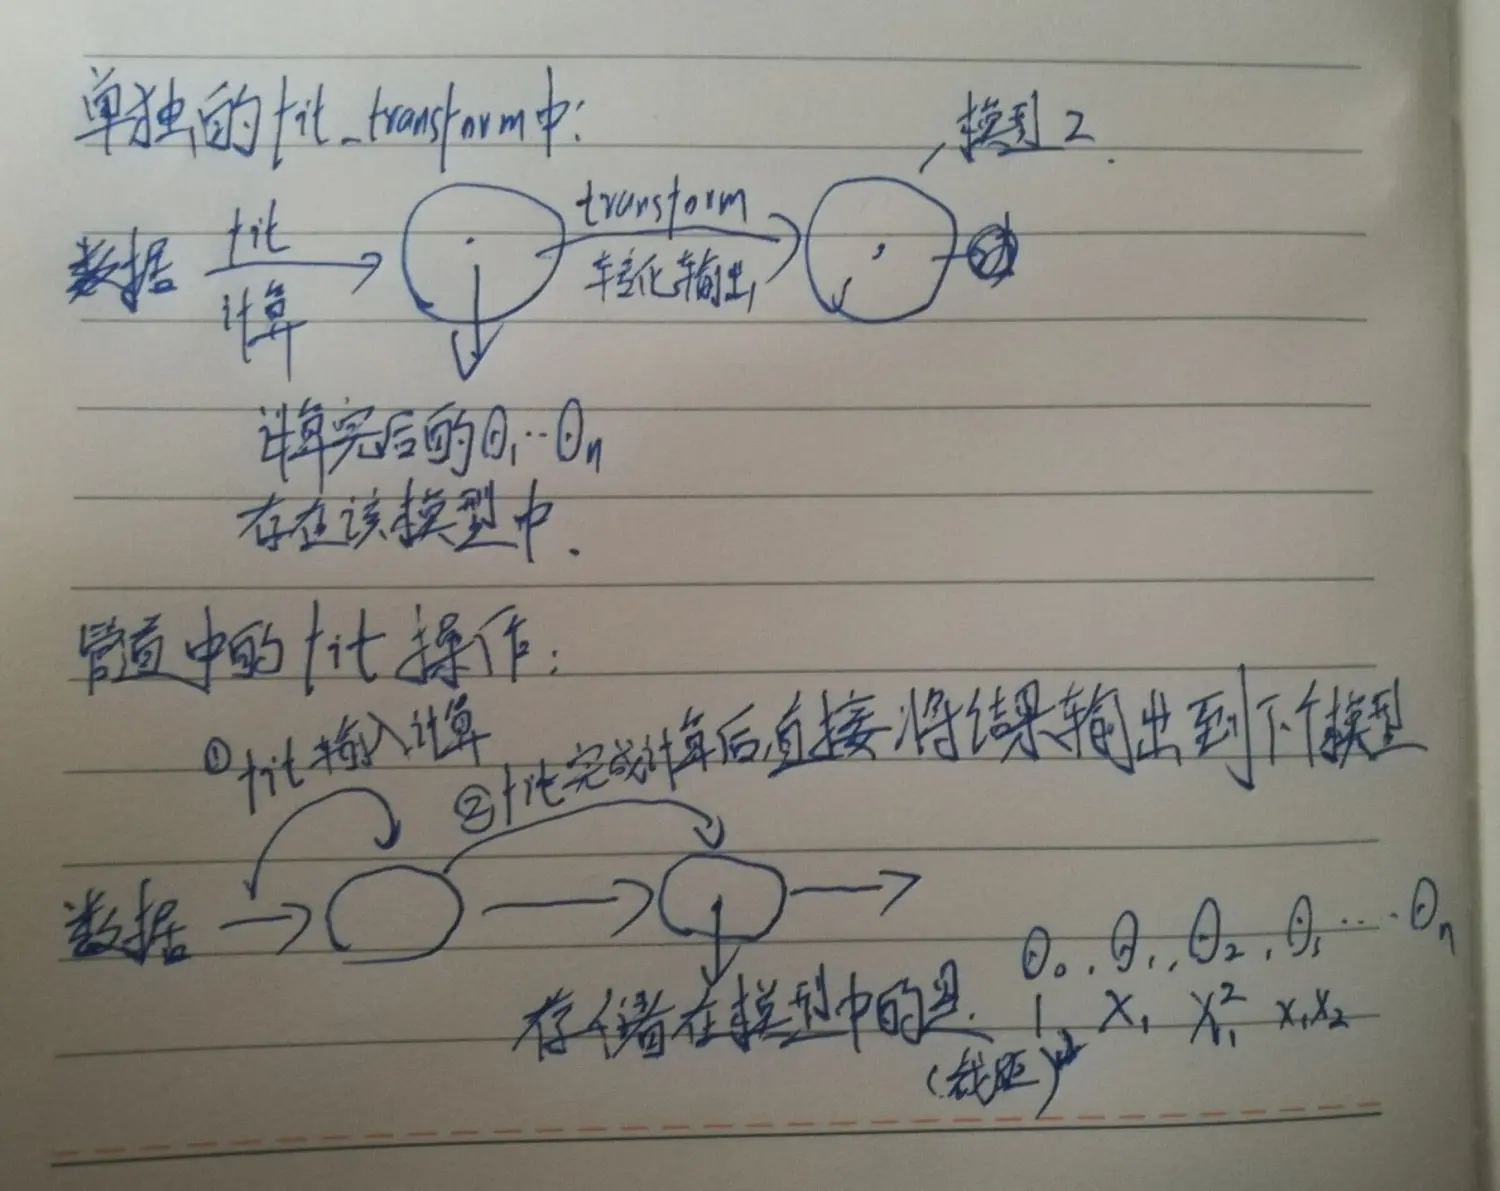 单独的fit_transform中:
模型2.
数据 fit transform
计算 转化输出
计算完后的θ₁…θn
存在该模型中.
管道中的fit操作:
①fit输入计算
②fit完成计算后直接将结果输出到下个模型
数据
θ₀,θ₁,θ₂,θ₁…θn
存储在模型中的是. 1, X₁ X₁² X₁X₂
(截距)